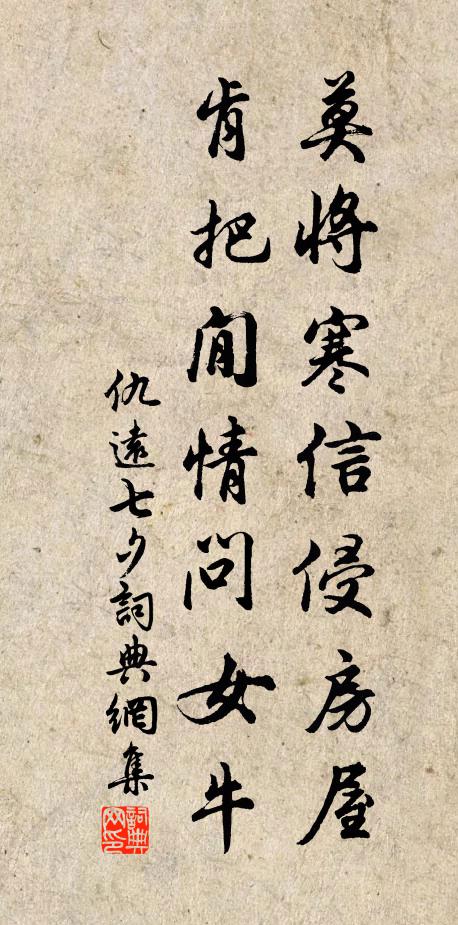 莫將寒信侵房屋
肯把閒情問女牛
仇遠七夕詞典網集
詞典
网印